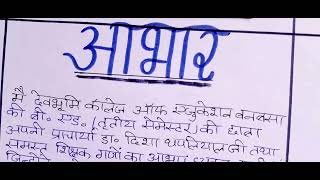 आभार
मै देवभूमि कॉलेज ऑफ एजुकेशन बनबसा
की बी. एड. (तृतीय सेमेस्टर) की छात्रा
अपनी प्राचार्या डा. दिशा थपलियाल जी तथा
समस्त शिक्षक गणों का आभार